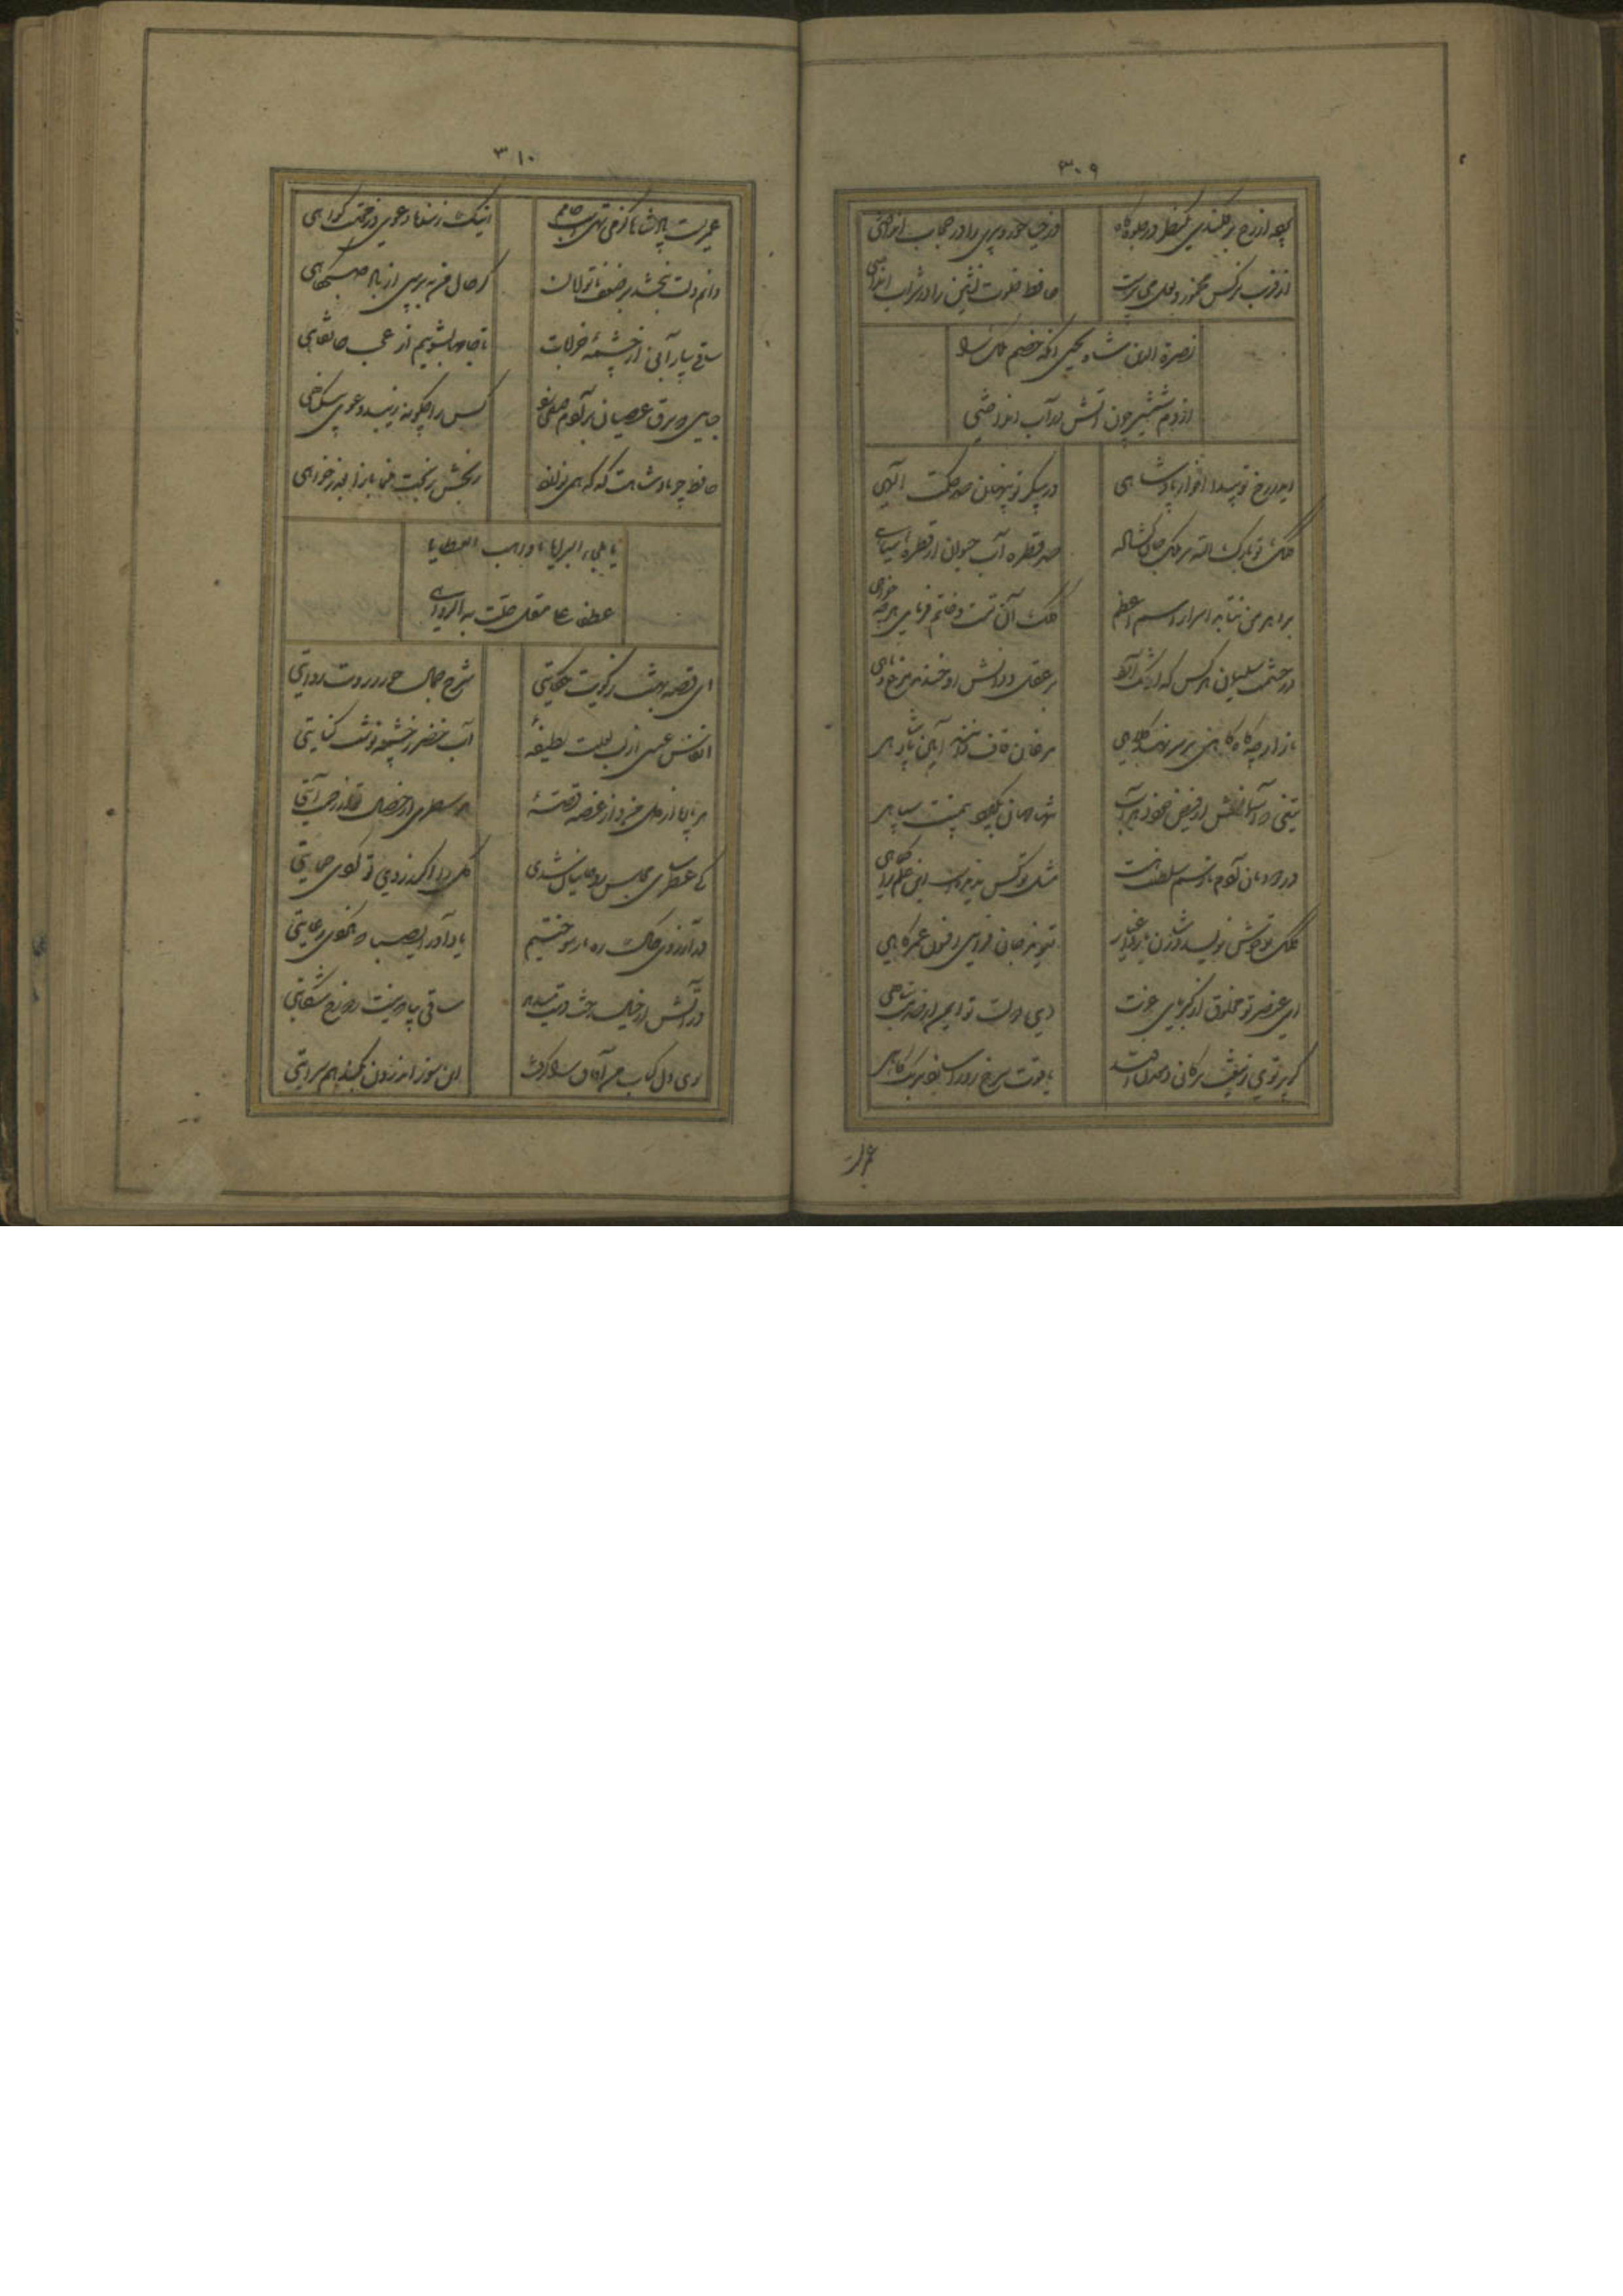 ۳۰۹
پرده از رخ برفکندی یکنظر در جلوه‌گاه
وز حیا حور و پری را در حجاب انداختی
از فریب نرکس مخمور و لعل می پرست
حافظ خلوت نشین را در شراب انداختی
نصرة الدین شاه یحیی آنکه خصم ملک را
از دم شمشیر چون آتش در آب انداختی
ای در رخ تو پیدا انوار پادشاهی
در پیکر تو پنهان صد حکمت الهی
کلک تو بارک الله بر ملک جان کشاده
صد قطره آب حیوان از قطره سیاهی
بر اهرمن نتابد اسرار اسم اعظم
ملک آن تست و خاتم فرمای هرچه خواهی
در حشمت سلیمان هر کس که شک
بر عقل و دانش او خندند مرغ و ماهی
باز ارچه گاه گاهی بر سر نهد کلاهی
مرغان قاف دانند آیین پادشاهی
تیغی که آسمانش از فیض خود دهد آب
تنها جهان بگیرد بی منت سپاهی
در دودمان آدم تا رسم سلطنت هست
مثل تو کس ندیدست این علم را کماهی
کلک تو خوش نویسد در شان یار و اغیار
تعویذ جان فزای افسون عمر کاهی
ای عنصر تو مخلوق از کبریای عزت
وی دولت تو ایمن از صدمت تباهی
گر پرتوی ز تیغت بر کان و معدن افتد
یاقوت سرخ رو را سازند برنک کاهی
عمریست
۳۱۰
عمریست پادشاها کز می تهیست جامم
اینک ز بنده دعوی وز محتسب گواهی
دانم دلت بخشد بر ضعف ناتوانان
گر حال من بپرسی از باد صبحگاهی
ساقی بیار آبی از چشمه خرابات
تا جامها بشوییم از عجب خانقاهی
جایی که برق عصیان بر آدم صفی زد
کس را چگونه زیبد دعوی بیگناهی
حافظ چو پادشاهت که گه میبرد نام
رنجش ز بخت منما باز آ بعذر خواهی
یا ملجاء البرایا یا واهب العطایا
عطفا علی مقل حلت به الدواهی
ای قصه بهشت ز کویت حکایتی
شرح جمال حور ز رویت روایتی
انفاس عیسی از لب لعلت لطیفهٔ
آب خضر ز چشمه نوشت کنایتی
هر پاره از دل من و از غصه قصهٔ
هر سطری از خصال تو از رحمت آیتی
کی عطر سای مجلس روحانیان شدی
گل را اگر نه بوی تو کردی حمایتی
در آرزوی خاک ره یار سوختیم
یاد آور ای صبا که نکردی حمایتی
در آتش ار خیال رخش دست میدهد
ساقی بیا که نیست ز دوزخ شکایتی
بوی دل کباب من آفاق را گرفت
این سوز اندرون بکند هم سرایتی